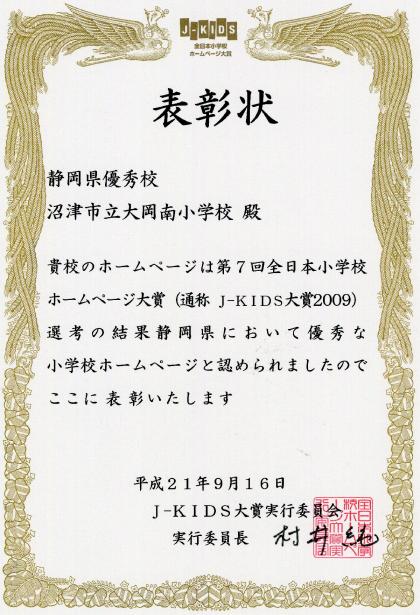 J-KIDS
全日本小学校
ホームページ大賞
表彰状
静岡県優秀校
沼津市立大岡南小学校 殿
貴校のホームページは第7回全日本小学校
ホームページ大賞（通称 J-KIDS大賞2009）
選考の結果静岡県において優秀な
小学校ホームページと認められましたので
ここに表彰いたします
平成21年9月16日
J-KIDS大賞実行委員会
実行委員長 村井純